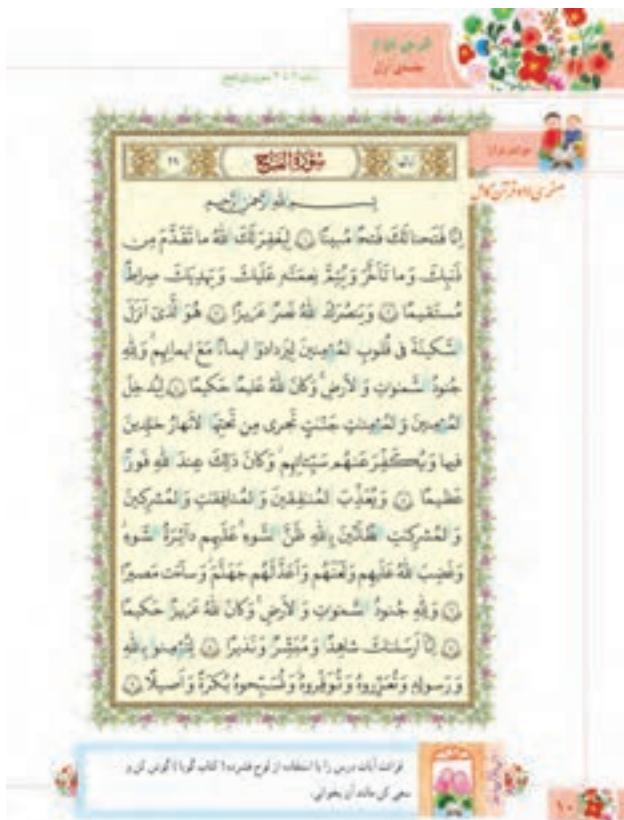 جلسه‌ی اوّل
سُورَةُ الفَتح
بِسمِ اللهِ الرَّحمنِ الرَّحيمِ
اِنّا فَتَحنا لَكَ فَتحًا مُبينًا ١ لِيَغفِرَ لَكَ اللهُ ما تَقَدَّمَ مِن
ذَنبِكَ وَ ما تَأَخَّرَ وَ يُتِمَّ نِعمَتَهو عَلَيكَ وَ يَهدِيَكَ صِراطًا
مُستَقيمًا ٢ وَ يَنصُرَكَ اللهُ نَصرًا عَزيزًا ٣ هُوَ الَّذى اَنزَلَ
السَّكينَةَ فى قُلوبِ المُؤمِنينَ لِيَزدادوا ايمانًا مَعَ ايمانِهِم وَ لِلّهِ
جُنودُ السَّمٰوٰتِ وَ الاَرضِ وَ كانَ اللهُ عَليمًا حَكيمًا ٤ لِيُدخِلَ
المُؤمِنينَ وَ المُؤمِنٰتِ جَنّٰتٍ تَجرى مِن تَحتِهَا الاَنهارُ خٰلِدينَ
فيها وَ يُكَفِّرَ عَنهُم سَيِّئاتِهِم وَ كانَ ذٰلِكَ عِندَ اللهِ فَوزًا
عَظيمًا ٥ وَ يُعَذِّبَ المُنٰفِقينَ وَ المُنافِقٰتِ وَ المُشرِكينَ
وَ المُشرِكٰتِ الظّانّينَ بِاللهِ ظَنَّ السَّوءِ عَلَيهِم دائِرَةُ السَّوءِ
وَ غَضِبَ اللهُ عَلَيهِم وَ لَعَنَهُم وَ اَعَدَّ لَهُم جَهَنَّمَ وَ ساءَت مَصيرًا
٦ وَ لِلّهِ جُنودُ السَّمٰوٰتِ وَ الاَرضِ وَ كانَ اللهُ عَزيزًا حَكيمًا
٧ اِنّا اَرسَلنٰكَ شاهِدًا وَ مُبَشِّرًا وَ نَذيرًا ٨ لِتُؤمِنوا بِاللهِ
وَ رَسولِهى وَ تُعَزِّروهُ وَ تُوَقِّروهُ وَ تُسَبِّحوهُ بُكرَةً وَ اَصيلًا ٩
قرائت آیات درس را با استفاده از لوح فشرده ( کتاب گویا ) گوش کن و
سعی کن مانند آن بخوانی.
١٠